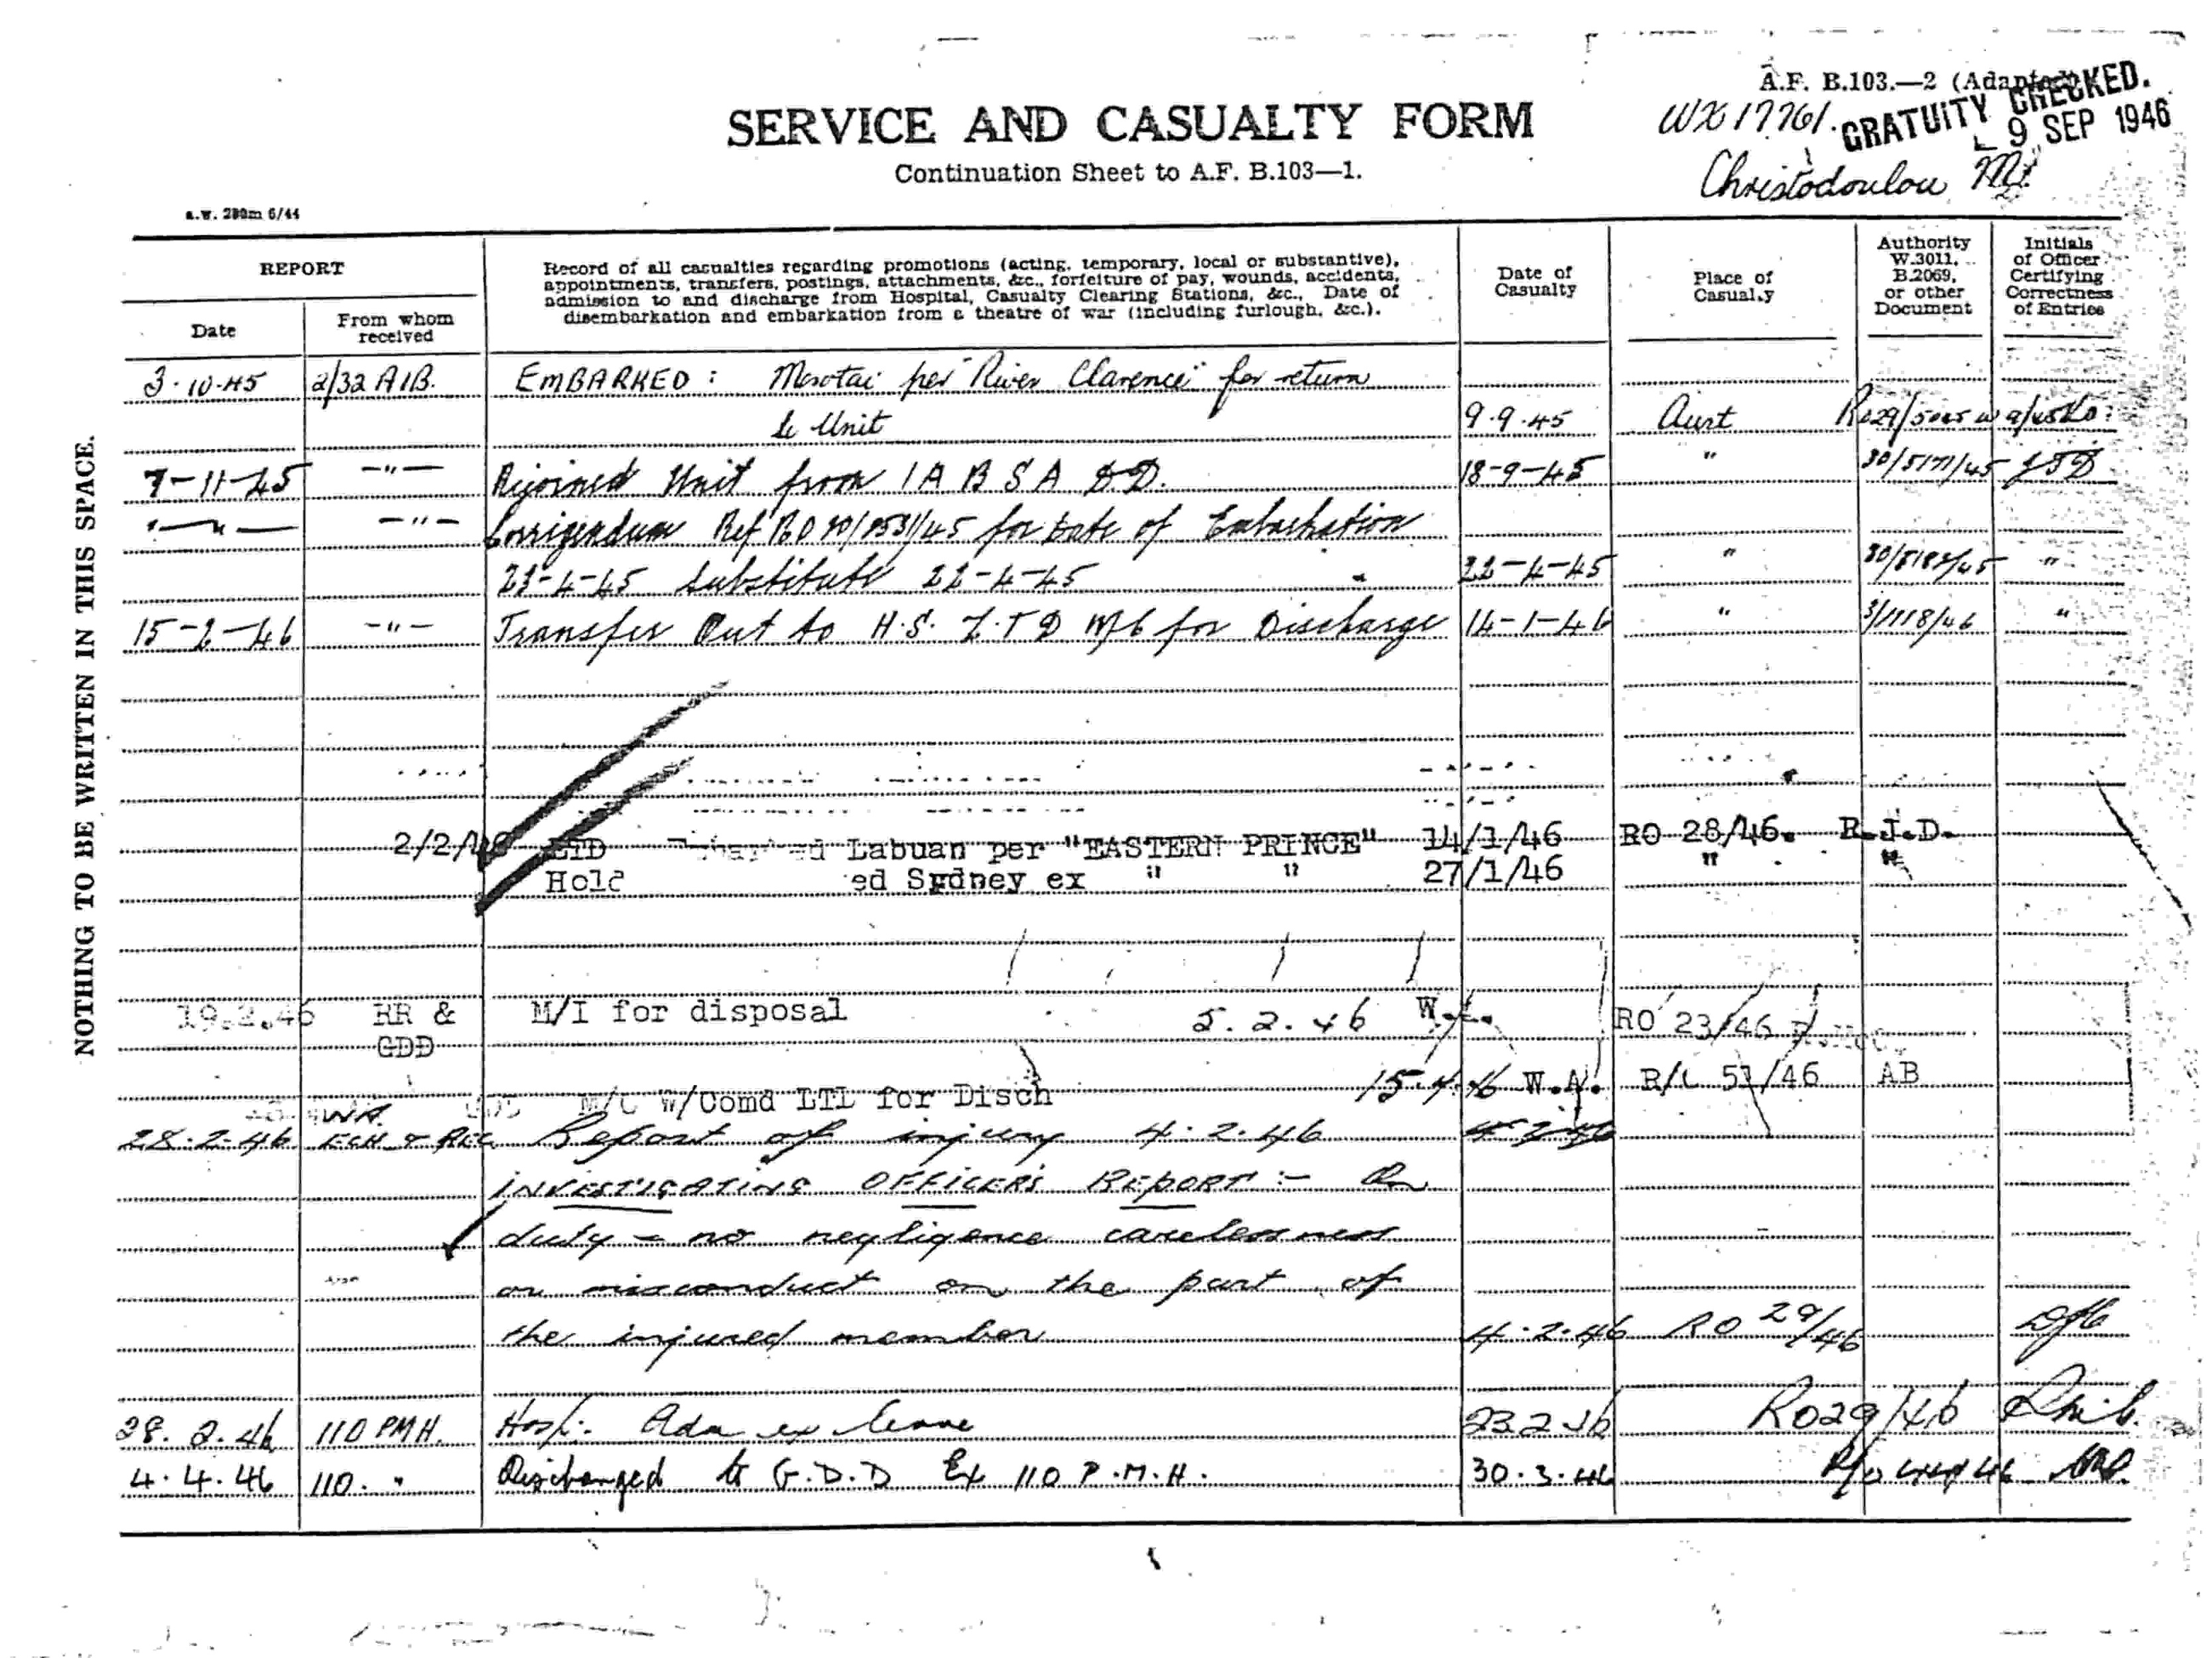 A.F. B.103.—2 (Adapted)
WX17761.
GRATUITY CHECKED.
9 SEP 1946
SERVICE AND CASUALTY FORM
Continuation Sheet to A.F. B.103—1.
Christodoulou M.
REPORT
Date
From whom received
Record of all casualties regarding promotions (acting, temporary, local or substantive),
appointments, transfers, postings, attachments, &c., forfeiture of pay, wounds, accidents,
admission to and discharge from Hospital, Casualty Clearing Stations, &c., Date of
disembarkation and embarkation from a theatre of war (including furlough, &c.).
Date of Casualty
Place of Casualty
Authority W.3011, B.2069, or other Document
Initials of Officer Certifying Correctness of Entries
NOTHING TO BE WRITTEN IN THIS SPACE.
3-10-45 2/32 AIB. EMBARKED: Morotai per "River Clarence" for return
to Unit 9.9.45 Aust
7-11-45 —"— Rejoined Unit from 1 A B S A D.D. 18-9-45 "
—"— —"— Corrigendum Ref for Date of Embarkation
23-4-45 Substitute 22-4-45 22-4-45 " "
15-2-46 —"— Transfer Out to H.S. for Discharge 14-1-46 " 3/1118/46 "
2/2/46 LTD Labuan per "EASTERN PRINCE" 14/1/46 RO 28/46. R.J.D.
Hold ed Sydney ex " " 27/1/46 " "
19.2.46 RR & M/I for disposal 5.2.46 RO 23/46
GDD
M/C W/Comd LTL for Disch 15.4.46 W.A. 51/46 AB
28.2.46 ECH & REC Report of injury 4.2.46
INVESTIGATING OFFICER'S REPORT :— On
duty — no negligence carelessness
or misconduct on the part of
the injured member 4.2.46 RO 29/46
28.2.46 110 PMH. Hosp. Adm ex leave 23.2.46 RO29/46
4.4.46 110. " Discharged to G.D.D Ex 110 P.M.H. 30.3.46